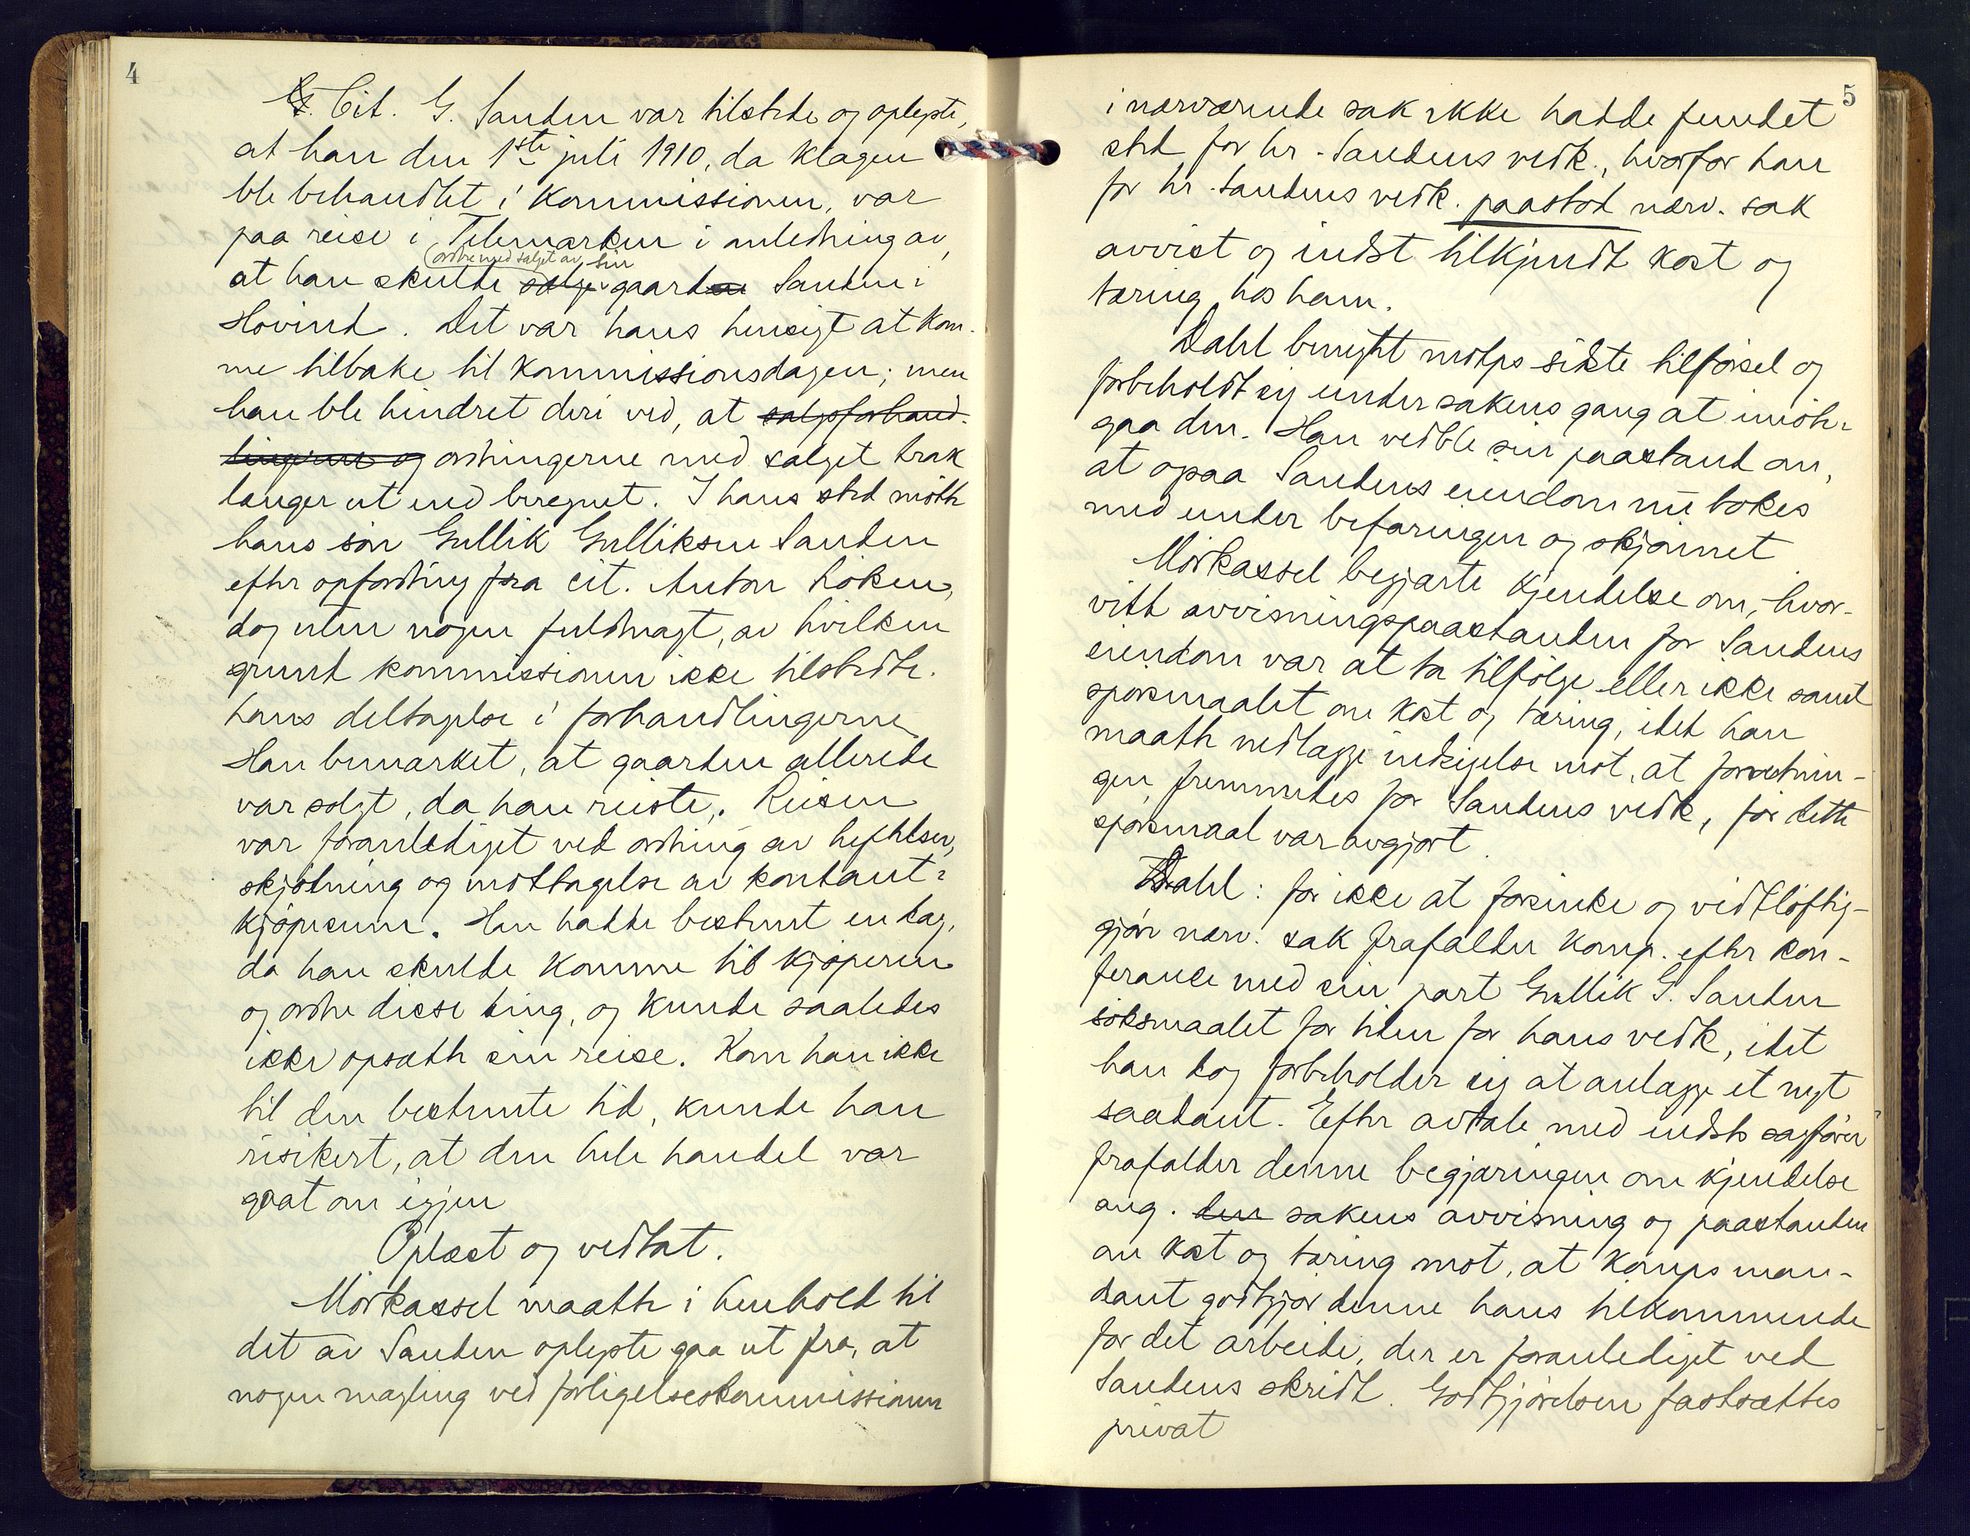 4
Cit. G. Sanden var tilstede og oplyste,
at han den 1ste juli 1910, da klagen
ble behandlet i kommissionen, var
paa reise i Telemarken i anledning av,
ordne med salget av sin
at han skulde sælge gaarden Sanden i
Hovind. Det var hans hensigt at kom-
me tilbake til kommissionsdagen; men
han ble hindret deri ved, at salgsforhand-
lingerne og ordningerne med salget trak
længer ut end beregnet. I hans sted møtte
hans søn Gullik Gulliksen Sanden
efter opfordring fra cit. Anton Løken,
dog uten nogen fuldmagt, av hvilken
grund kommissionen ikke tilstedte
hans deltagelse i forhandlingerne
Han bemærket, at gaarden allerede
var solgt, da han reiste. Reisen
var foranlediget ved ordning av heftelser,
skjøtning og mottagelse av kontant-
kjøpesum. Han hadde bestemt en dag,
da han skulde komme til kjøperen
og ordne disse ting, og kunde saaledes
ikke opsætte sin reise. Kom han ikke
til den bestemte tid, kunde han
risikert, at den hele handel var
gaat om igjen
Oplæst og vedtat.
Mörkassel maatte i henhold til
det av Sanden oplyste gaa ut fra, at
nogen mægling ved forligelseskommissionen
5
i nærværende sak ikke hadde fundet
sted for hr. Sandens vedk., hvorfor han
for hr. Sandens vedk. paastod nærv. sak
avvist og indst tilkjendt kost og
tæring hos ham.
Dahl benegtet motps sidste tilførsel og
forbeholdt sig under sakens gang at imøte-
gaa den. Han vedble sin paastand om,
at ogsaa Sandens eiendom nu tokes
med under befaringen og skjønnet
Mörkassel begjærte kjendelse om, hvor-
vidt avvisningspaastanden for Sandens
eiendom var at ta tilfølge eller ikke samt
spørsmaalet om kost og tæring, idet han
maatte nedlægge indsigelse mot, at forretnin-
gen fremmedes for Sandens vedk, før dette
spørsmaal var avgjort.
Dahl: for ikke at forsinke og vidtløftig-
gjøre nærv. sak frafalder komp. efter kon-
ferance med sin part Gullik G. Sanden
søksmaalet for tiden for hans vedk, idet
han dog forbeholder sig at anlægge et nyt
saadant. Efter avtale med indsts sagfører
frafalder denne begjæringen om kjendelse
ang. den sakens avvisning og paastanden
om kost og tæring mot, at komps man-
dant godtgjør denne hans tilkommende
for det arbeide, der er foranlediget ved
Sandens skridt. Godtgjørelsen fastsættes
privat